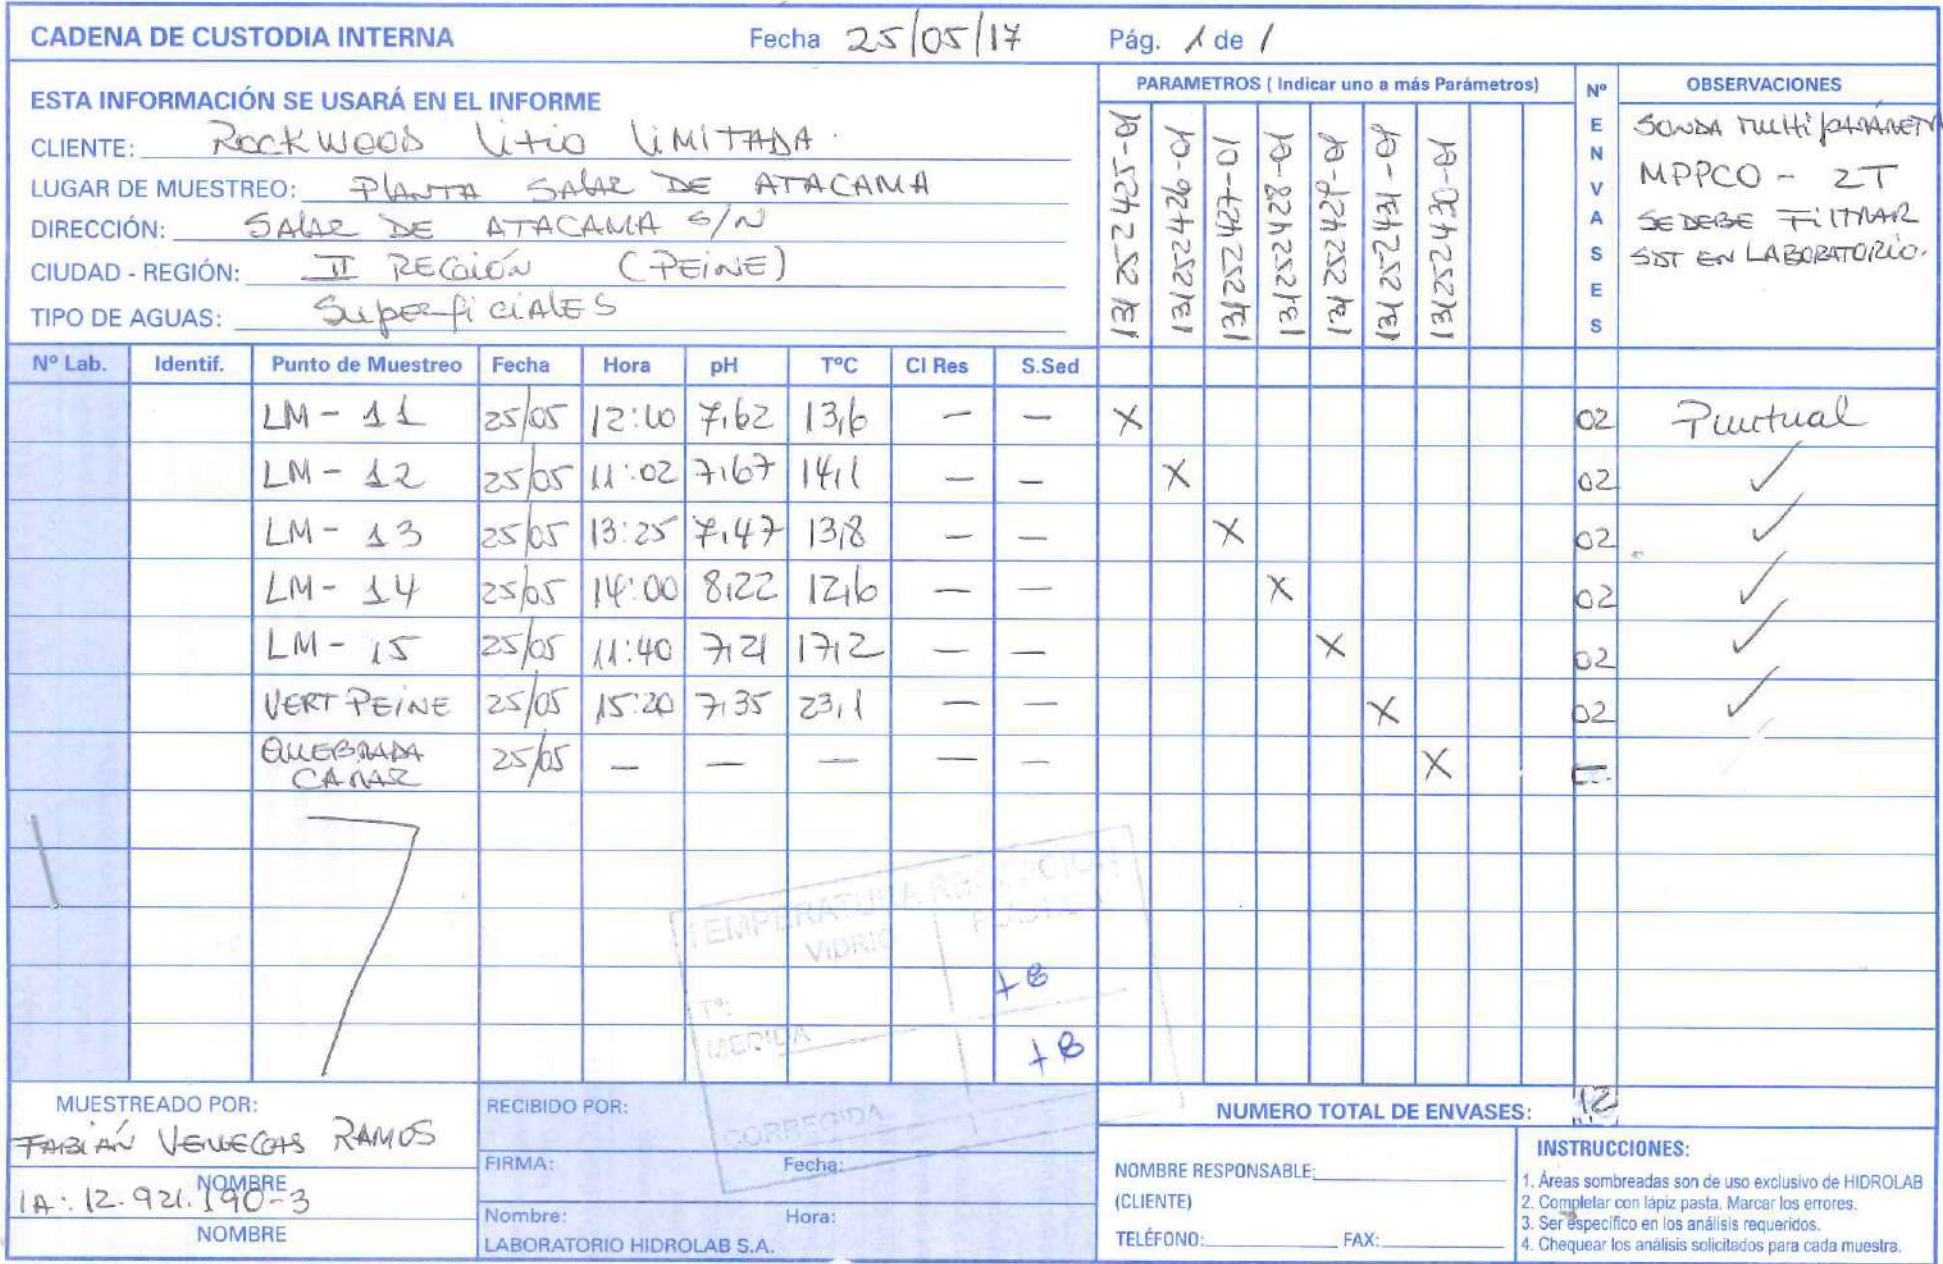 CADENA DE CUSTODIA INTERNA Fecha 25/05/17 Pág. 1 de 1
ESTA INFORMACIÓN SE USARÁ EN EL INFORME
CLIENTE: Rockwood Litio LIMITADA.
LUGAR DE MUESTREO: PLANTA SALAR DE ATACAMA
DIRECCIÓN: SALAR DE ATACAMA S/N
CIUDAD - REGIÓN: II REGIÓN (PEINE)
TIPO DE AGUAS: SuperficiALES
PARAMETROS ( Indicar uno a más Parámetros)
131252425-01
131252426-01
131252427-01
131252428-01
131252429-01
131252431-01
131252430-01
Nº ENVASES
OBSERVACIONES
SONDA MULTI PARAMETR
MPPCO - 2T
SE DEBE FILTRAR
SDT EN LABORATORIO.
Nº Lab. Identif. Punto de Muestreo Fecha Hora pH TºC Cl Res S.Sed
LM - 11 25/05 12:10 7,62 13,6 — — X 02 Puntual
LM - 12 25/05 11:02 7,67 14,1 — — X 02 ✓
LM - 13 25/05 13:25 7,47 13,8 — — X 02 ✓
LM - 14 25/05 14:00 8,22 12,6 — — X 02 ✓
LM - 15 25/05 11:40 7,21 17,2 — — X 02 ✓
VERT PEINE 25/05 15:20 7,35 23,1 — — X 02 ✓
QUEBRADA
CAMAR 25/05 — — — — — X —
TEMPERATURA
VIDRIO
Tº:
MEDIDA
CORREGIDA
MUESTREADO POR:
FABIÁN VENEGAS RAMOS
NOMBRE
IA: 12.921.190-3
NOMBRE
RECIBIDO POR:
FIRMA: Fecha:
Nombre: Hora:
LABORATORIO HIDROLAB S.A.
NUMERO TOTAL DE ENVASES: 12
NOMBRE RESPONSABLE:
(CLIENTE)
TELÉFONO: FAX:
INSTRUCCIONES:
1. Áreas sombreadas son de uso exclusivo de HIDROLAB
2. Completar con lápiz pasta. Marcar los errores.
3. Ser específico en los análisis requeridos.
4. Chequear los análisis solicitados para cada muestra.